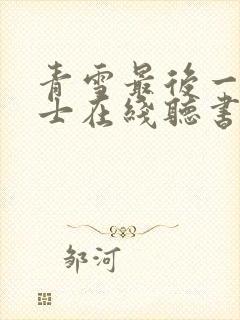 青雪最後一
士在綫聽書
邹河